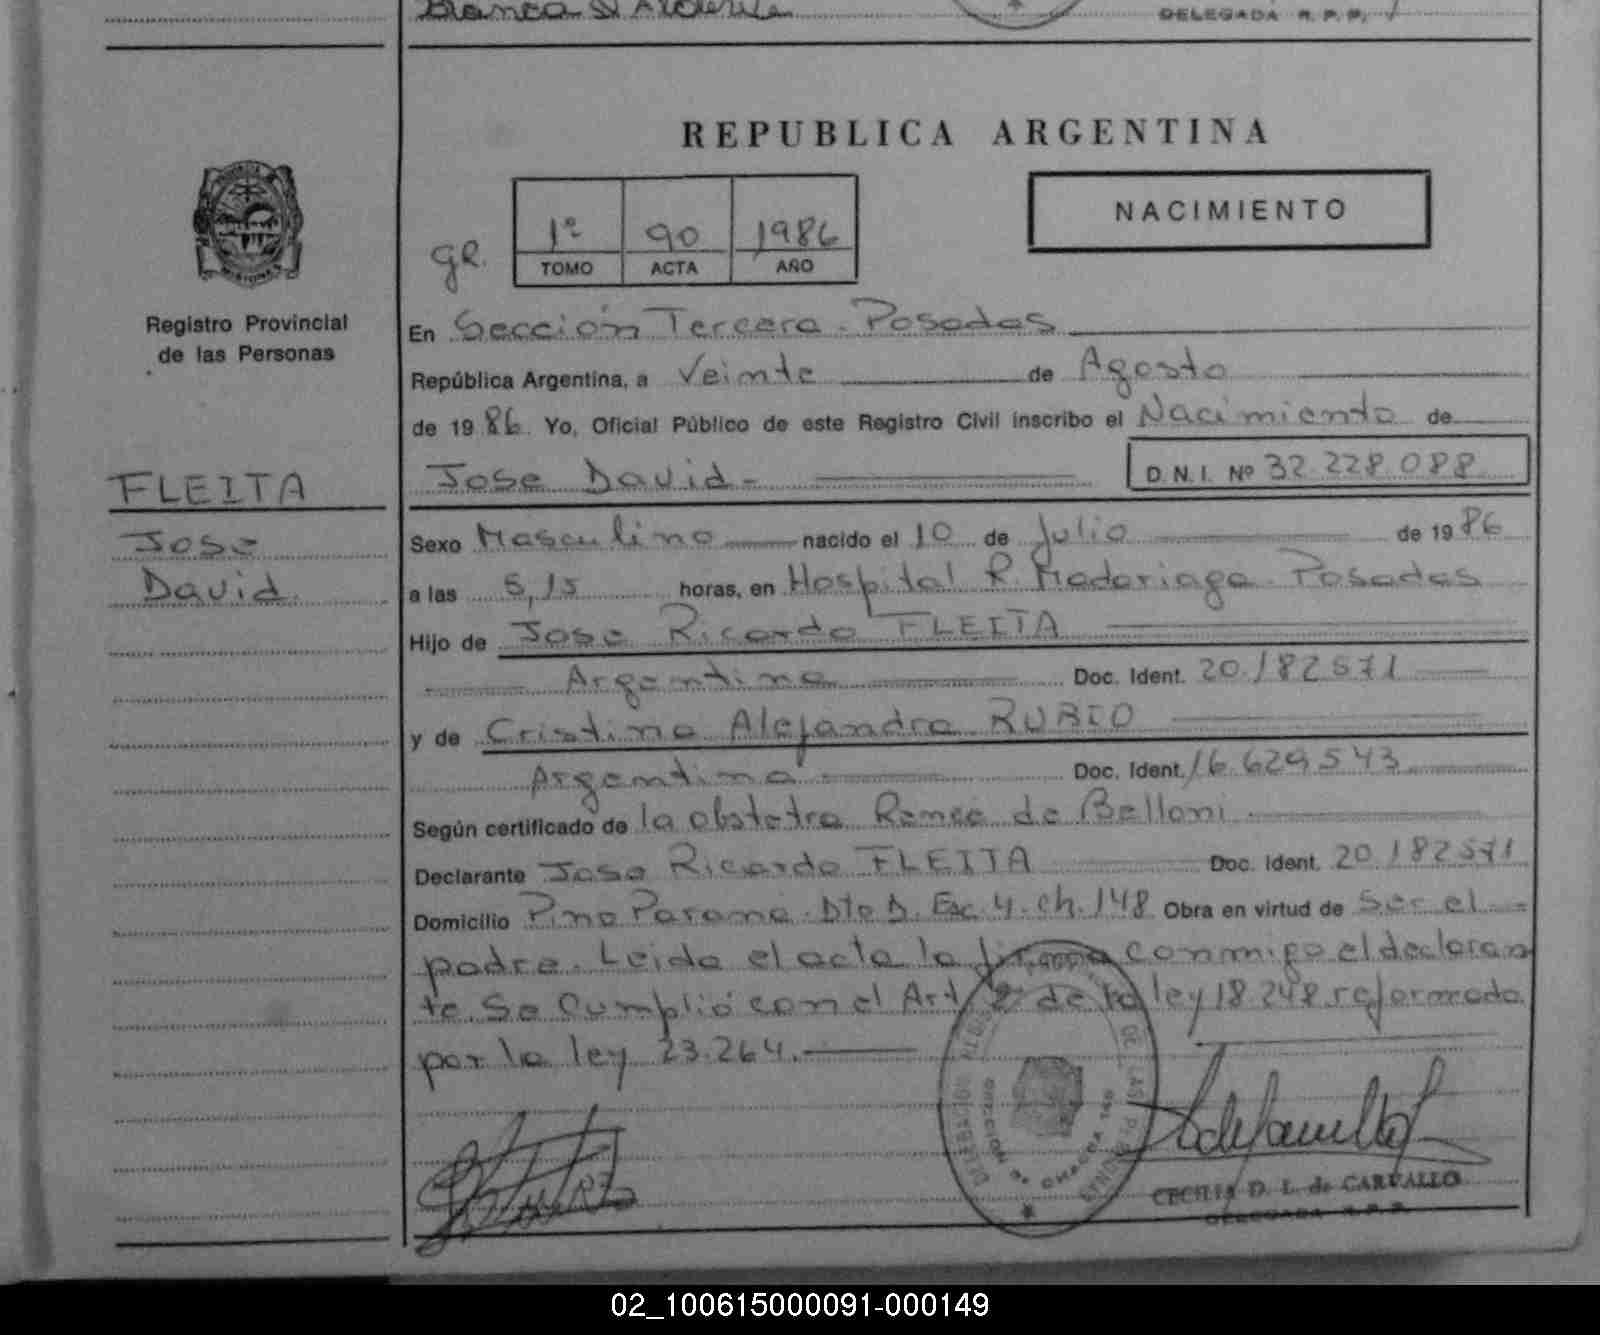 Blanca
DELEGADA R. P. P.
REPUBLICA ARGENTINA
NACIMIENTO
gr.
1º 90 1986
TOMO ACTA AÑO
MISIONES
Registro Provincial
de las Personas
En Sección Tercera - Posadas
República Argentina, a Veinte de Agosto
de 19 86. Yo, Oficial Público de este Registro Civil inscribo el Nacimiento de
Jose David -
D. N. I. Nº 32.228.088
FLEITA
Jose
David.
Sexo Masculino nacido el 10 de Julio de 19 86
a las 5,15 horas, en Hospital R. Madariaga - Posadas
Hijo de Jose Ricardo FLEITA
Argentino Doc. Ident. 20.182571
y de Cristina Alejandra RUBIO
Argentina Doc. Ident. 16.629543
Según certificado de la obstetra Renee de Belloni
Declarante Jose Ricardo FLEITA Doc. Ident. 20.182571
Domicilio Pino Parana - Dto D. Esc. 4. ch. 148 Obra en virtud de Ser el -
padre. Leida el acta la firma conmigo el declaran
te. Se Cumplió con el Art. 2º de la ley 18.248 reformada
por la ley 23.264.
DE LAS PERSONAS
CHACRA 148
CECILIA D. L. de CARVALLO
DELEGADA R. P. P.
02_100615000091-000149